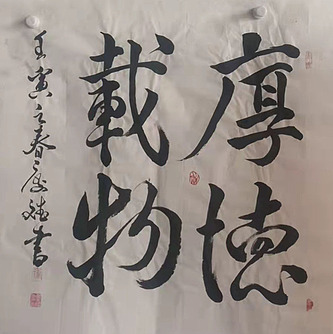 厚德
載物
壬寅之春
書